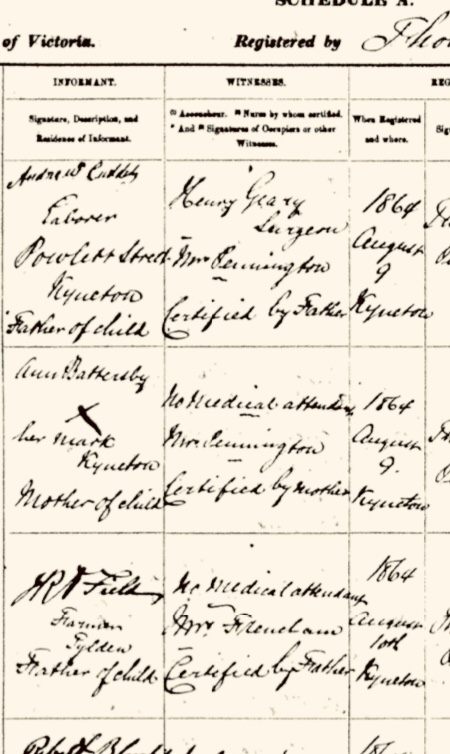 SCHEDULE A.
of Victoria. Registered by
INFORMANT. WITNESSES.
Signature, Description, and
Residence of Informant.
(1) Accoucheur. (2) Nurse by whom certified.
And Signatures of Occupiers or other
Witnesses.
When Registered
and where.
Andrew
Laborer
Powlett Street
Kyneton
Father of child
Henry Geary
Surgeon
Mrs Pennington
Certified by Father
1864
August
9
Kyneton
Ann Battersby
X
her mark
Kyneton
Mother of child
No Medical attendant
Mrs Pennington
Certified by Mother
1864
August
9.
Kyneton
Field
Farmer
Tylden
Father of child
No Medical attendant
Mrs Frencham
Certified by Father
1864
August
10th
Kyneton
Robert